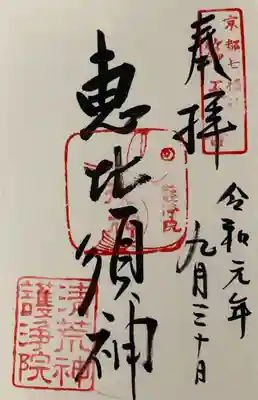 奉拝
令和元年
九月三十日
恵比須神
京都七福神
護浄院
清荒神
護浄院